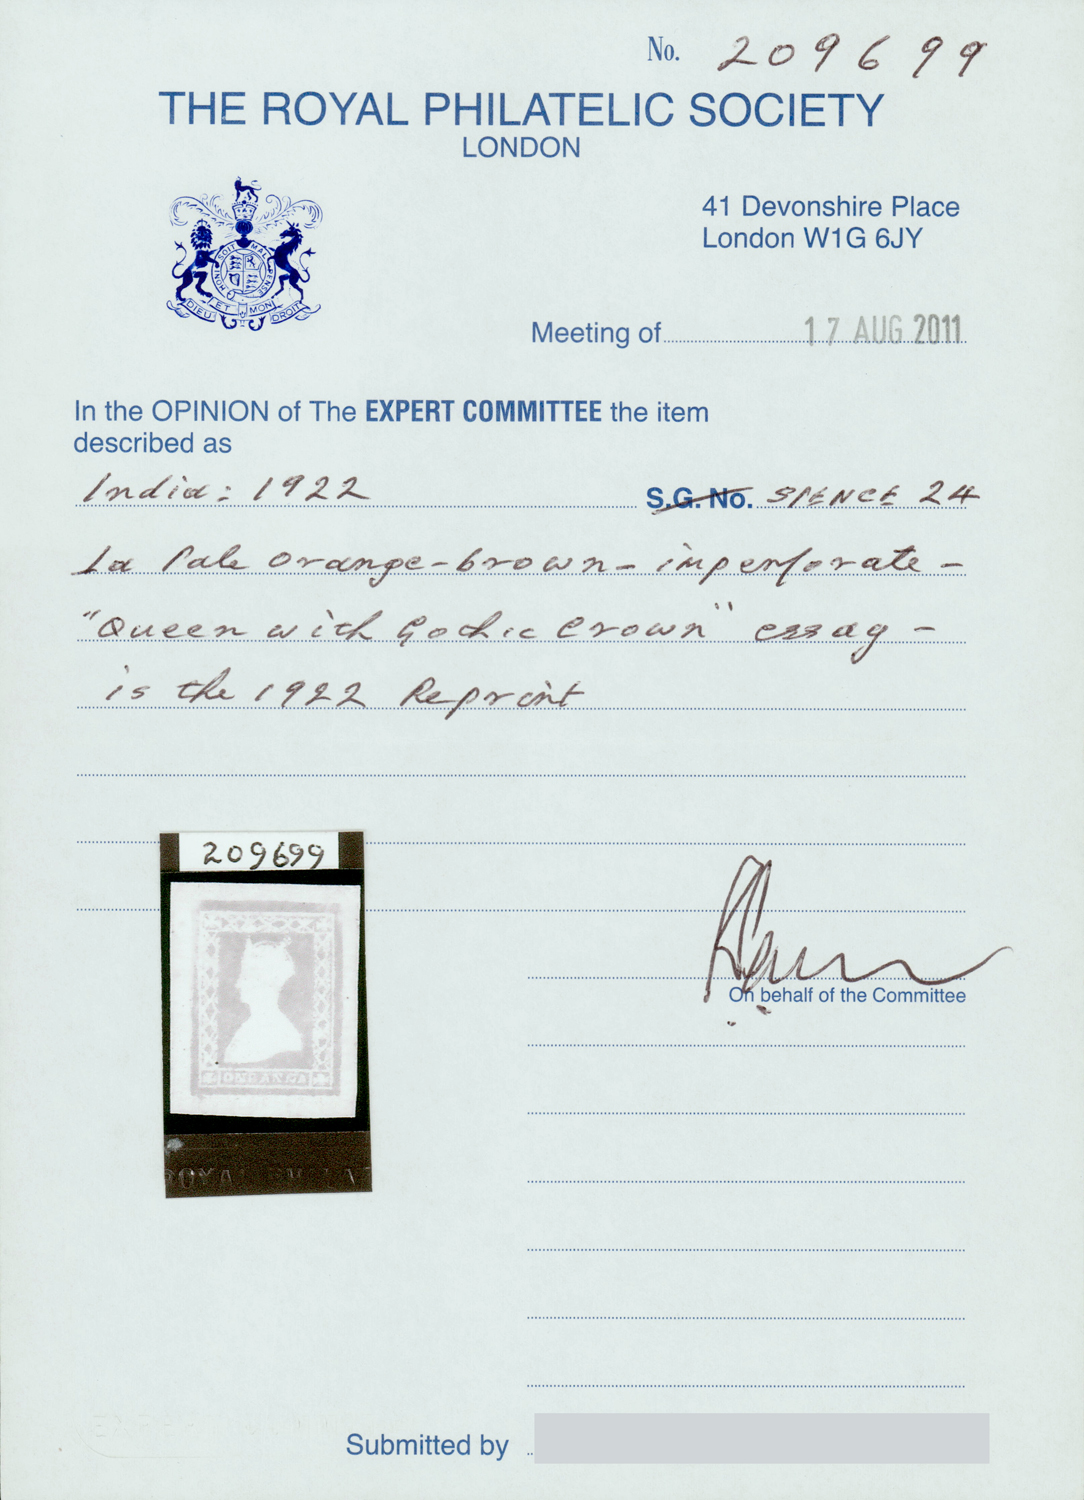 No. 209699
THE ROYAL PHILATELIC SOCIETY
LONDON
41 Devonshire Place
London W1G 6JY
HONI SOIT MAL PENSE
DIEU ET MON DROIT
Meeting of 17 AUG 2011
In the OPINION of The EXPERT COMMITTEE the item
described as
India: 1922 S.G. No. SPENCE 24
1a Pale orange-brown - imperforate -
"Queen with Gothic Crown" essay -
is the 1922 Reprint
209699
ONE ANNA
On behalf of the Committee
ROYA
Submitted by